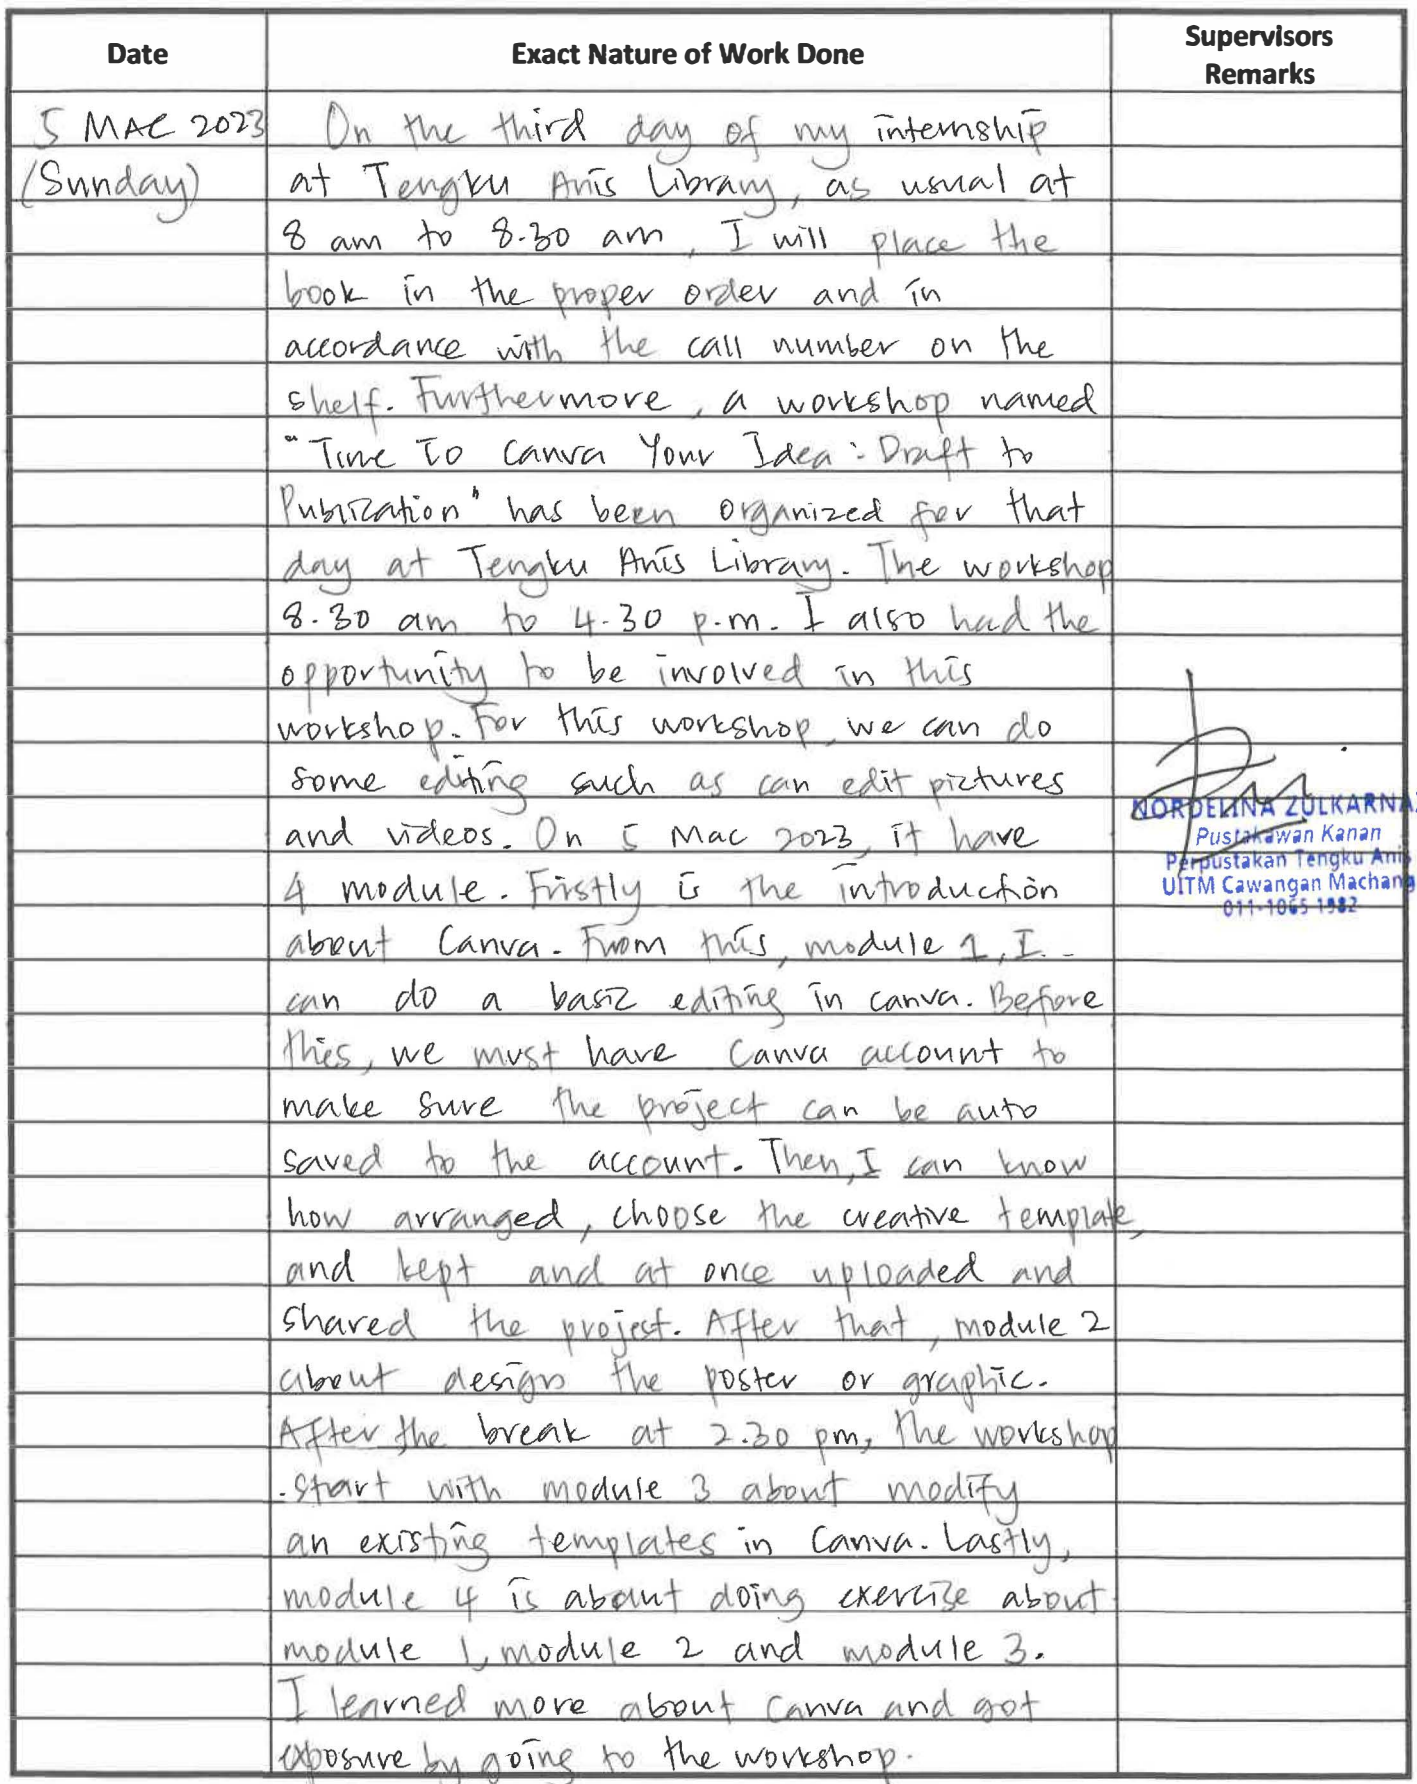 Date Exact Nature of Work Done Supervisors Remarks
5 MAC 2023 On the third day of my internship
(Sunday) at Tengku Anis Library, as usual at
8 am to 8.30 am, I will place the
book in the proper order and in
accordance with the call number on the
shelf. Furthermore, a workshop named
"Time To Canva Your Idea : Draft to
Publication" has been organized for that
day at Tengku Anis Library. The workshop
8.30 am to 4.30 p.m. I also had the
opportunity to be involved in this
workshop. For this workshop, we can do
some editing such as can edit pictures
and videos. On 5 Mac 2023, it have
4 module. Firstly is the introduction
about Canva. From this, module 1, I
can do a basic editing in canva. Before
this, we must have Canva account to
make sure the project can be auto
saved to the account. Then, I can know
how arranged, choose the creative template,
and kept and at once uploaded and
shared the project. After that, module 2
about design the poster or graphic.
After the break at 2.30 pm, the workshop
start with module 3 about modify
an existing templates in Canva. Lastly,
module 4 is about doing exercise about
module 1, module 2 and module 3.
I learned more about Canva and got
exposure by going to the workshop.
NORDELINA ZULKARNA
Pustakawan Kanan
Perpustakan Tengku Anis
UITM Cawangan Machang
011-1065 1982